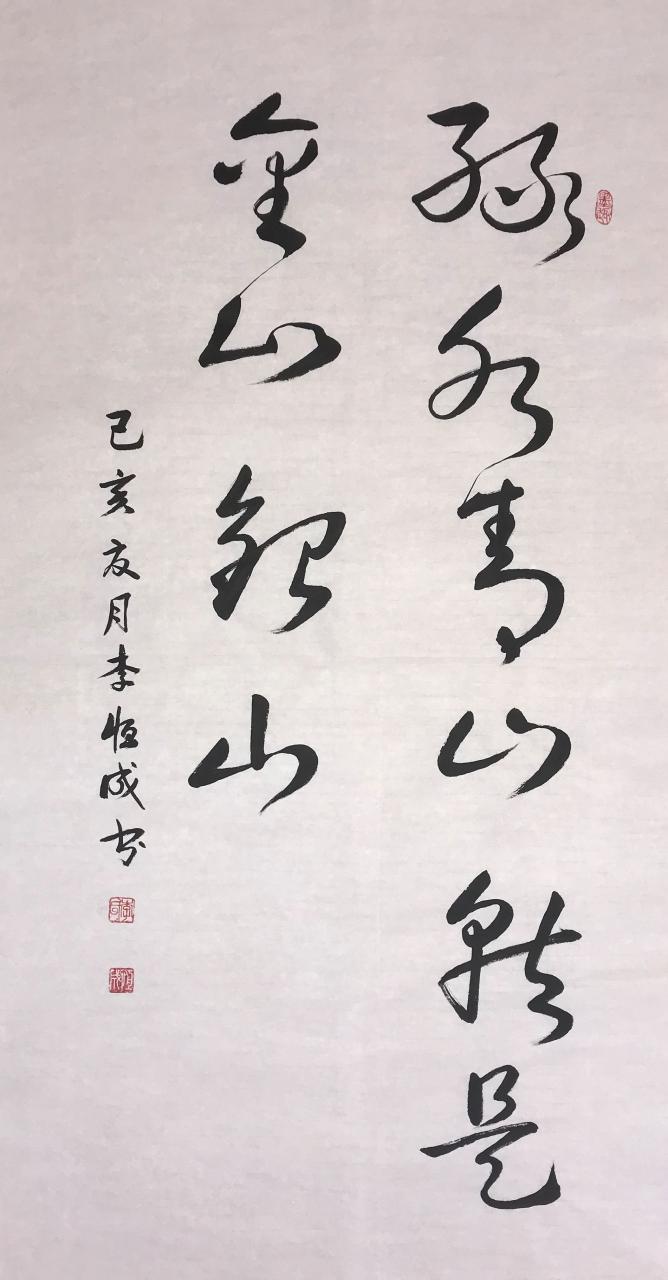 绿水青山就是
金山银山
己亥夏月李恒成书